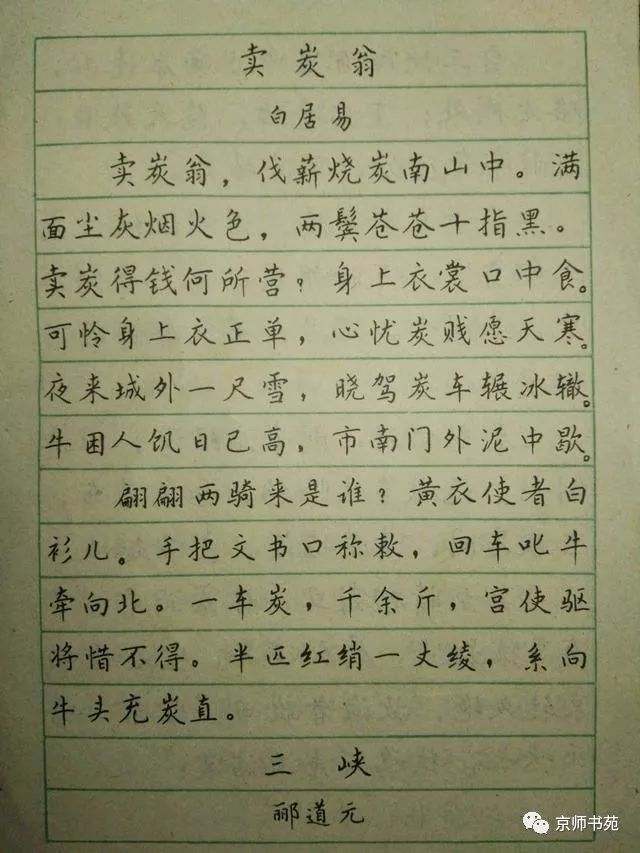 卖炭翁
白居易
卖炭翁，伐薪烧炭南山中。满
面尘灰烟火色，两鬓苍苍十指黑。
卖炭得钱何所营？身上衣裳口中食。
可怜身上衣正单，心忧炭贱愿天寒。
夜来城外一尺雪，晓驾炭车辗冰辙。
牛困人饥日已高，市南门外泥中歇。
翩翩两骑来是谁？黄衣使者白
衫儿。手把文书口称敕，回车叱牛
牵向北。一车炭，千余斤，宫使驱
将惜不得。半匹红绡一丈绫，系向
牛头充炭直。
三峡
郦道元
京师书苑